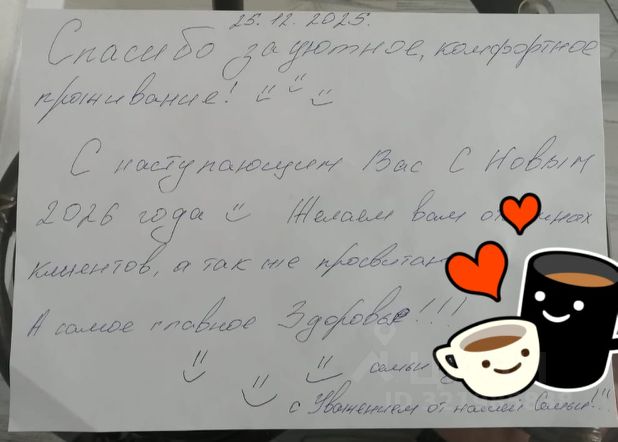 25.12.2025.
Спасибо за уютное, комфортное
проживание!
С наступающим Вас С Новым
2026 года Желаем вам
клиентов, а так же
А самое главное Здоровье!!!
семьи
с Уважением от нашей Семьи!!